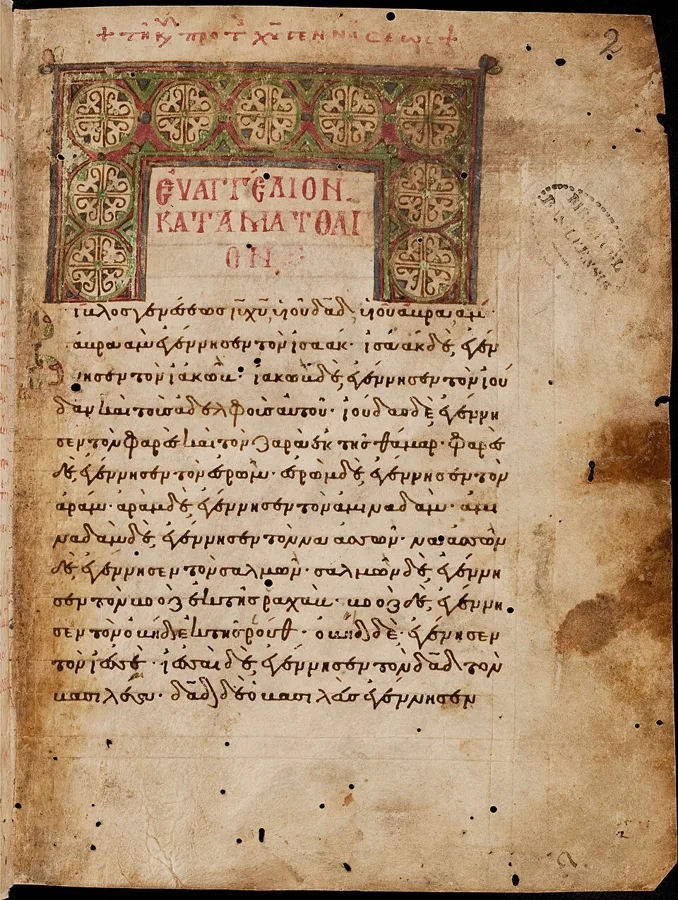 + τῇ κυ πρὸ τ χυ γεννήσεως +
2
ΕΥΑΓΓΕΛΙΟΝ
ΚΑΤΑ ΜΑΤΘΑΙ
ΟΝ
ίβλος γενέσεως ιυ χυ, υἱοῦ δαδ, υἱοῦ αβραάμ·
ἀβραὰμ ἐγέννησεν τὸν ἰσαάκ· ἰσαὰκ δὲ, ἐγέν
νησεν τὸν ἰακώβ· ἰακὼβ δὲ, ἐγέννησεν τὸν ἰού
δαν καὶ τοὺς ἀδελφοὺς αὐτοῦ· ἰούδας δὲ ἐγέννη
σεν τὸν φαρὲς καὶ τὸν ζαρὰ ἐκ τῆς θάμαρ· φαρὲς
δὲ, ἐγέννησεν τὸν ἐσρώμ· ἐσρὼμ δὲ, ἐγέννησεν τὸν
ἀράμ· ἀρὰμ δὲ, ἐγέννησεν τὸν ἀμιναδάμ· ἀμι
ναδὰμ δὲ, ἐγέννησεν τὸν ναασσών· ναασσὼν
δὲ, ἐγέννησεν τὸν σαλμών· σαλμὼν δὲ, ἐγέννη
σεν τὸν βοὸζ ἐκ τῆς ραχάβ· βοὸζ δὲ, ἐγέννη
σεν τὸν ὠβὴδ ἐκ τῆς ρούθ· ὠβὴδ δὲ· ἐγέννησεν
τὸν ἰεσσέ· ἰεσσαὶ δὲ, ἐγέννησεν τὸν δαδ τὸν
βασιλέα· δαδ δὲ ὁ βασιλεὺς ἐγέννησεν